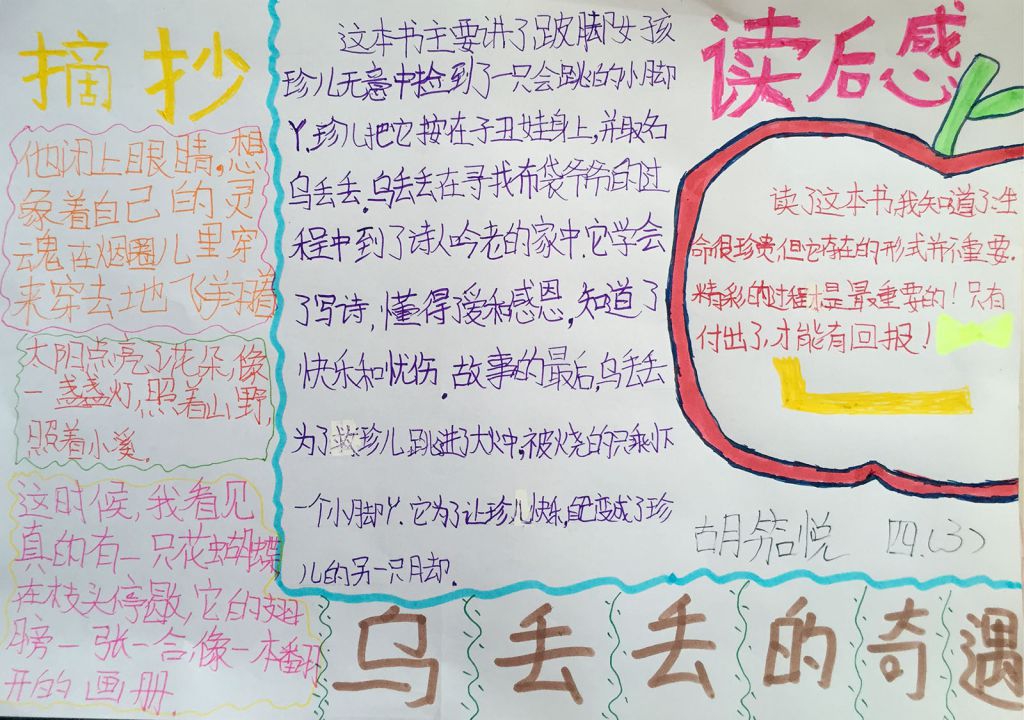 摘抄
他闭上眼睛,想
象着自己的灵
魂在烟圈儿里穿
来穿去地飞翔着
太阳点亮了花朵,像
一盏盏灯,照着山野,
照着小溪.
这时候,我看见
真的有一只花蝴蝶
在枝头停歇,它的翅
膀一张一合,像一本翻
开的画册.
这本书主要讲了跛脚女孩
珍儿无意中捡到了一只会跳的小脚
丫.珍儿把它按在子丑娃身上,并取名
乌丢丢.乌丢丢在寻找布袋爷爷的过
程中到了诗人吟老的家中.它学会
了写诗,懂得了爱和感恩,知道了
快乐和忧伤.故事的最后,乌丢丢
为了救珍儿,跳进了大火中,被火烧的只剩下
一个小脚丫.它为了让珍儿快乐,自己变成了珍
儿的另一只脚.
读后感
读了这本书,我知道了:生
命很珍贵,但它存在的形式并不重要.
精彩的过程才是最重要的!只有
付出了,才能有回报!
胡
悦 四.(3)
乌丢丢的奇遇